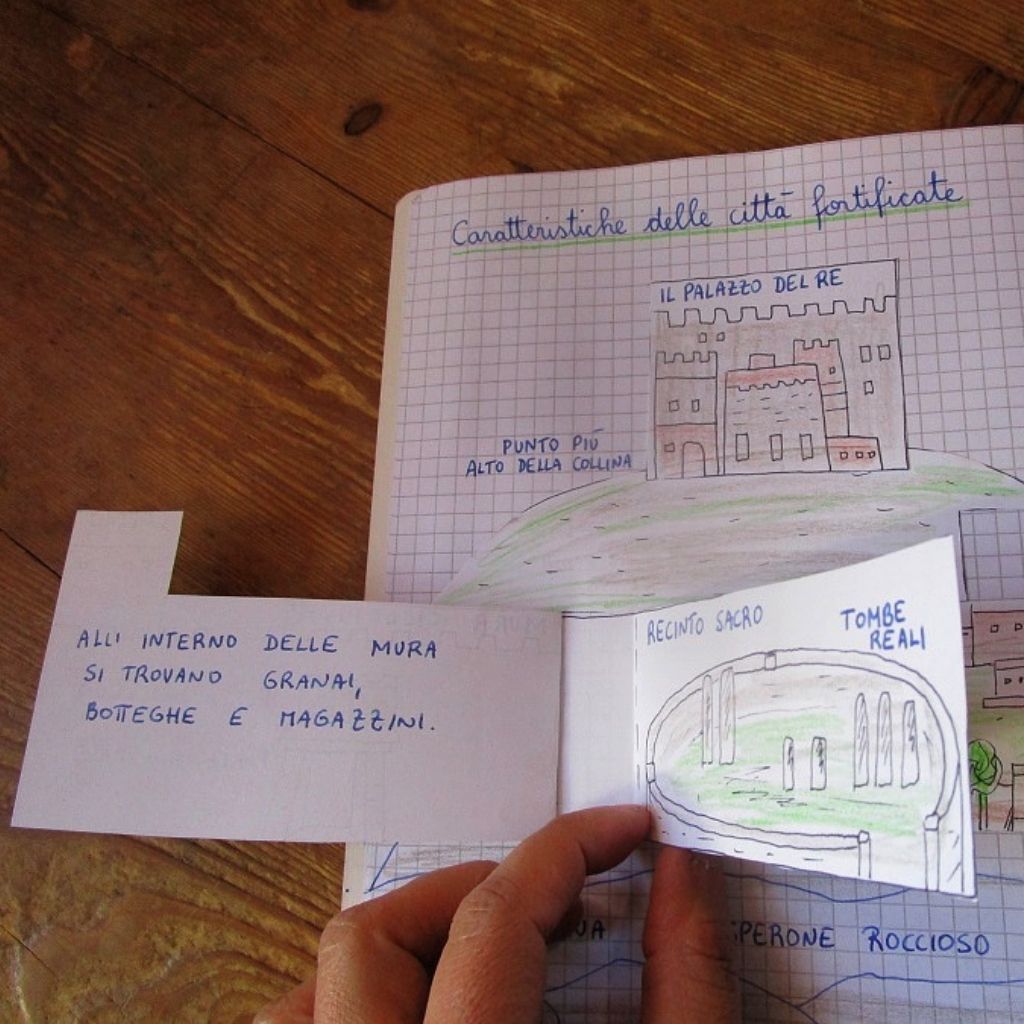 Caratteristiche delle città fortificate
IL PALAZZO DEL RE
PUNTO PIÙ
ALTO DELLA COLLINA
ALL' INTERNO DELLE MURA
SI TROVANO GRANAI,
BOTTEGHE E MAGAZZINI.
RECINTO SACRO
TOMBE
REALI
ROCCIOSO